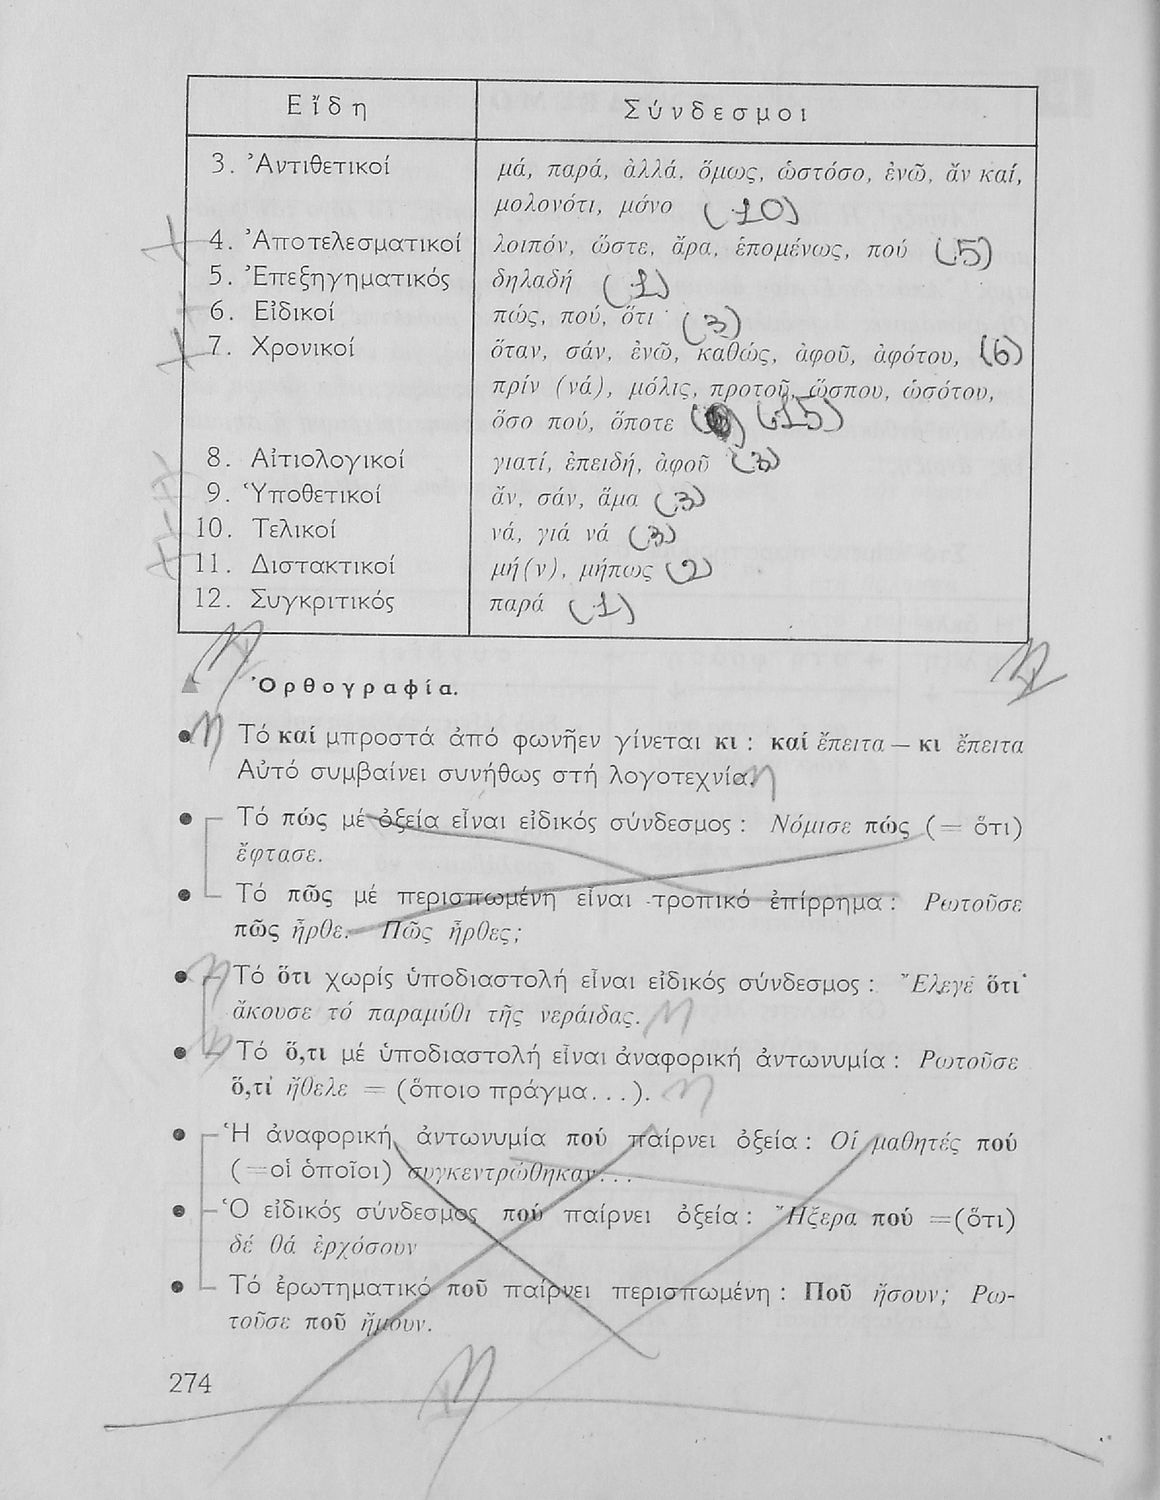 Εἴδη Σύνδεσμοι
3. Ἀντιθετικοί μά, παρά, ἀλλά, ὅμως, ὡστόσο, ἐνῶ, ἄν καί,
μολονότι, μόνο (10)
4. Ἀποτελεσματικοί λοιπόν, ὥστε, ἄρα, ἑπομένως, πού (5)
5. Ἐπεξηγηματικός δηλαδή (1)
6. Εἰδικοί πώς, πού, ὅτι (3)
7. Χρονικοί ὅταν, σάν, ἐνῶ, καθώς, ἀφοῦ, ἀφότου, (6)
πρίν (νά), μόλις, προτοῦ, ὥσπου, ὡσότου,
ὅσο πού, ὅποτε (15)
8. Αἰτιολογικοί γιατί, ἐπειδή, ἀφοῦ (3)
9. Ὑποθετικοί ἄν, σάν, ἅμα (3)
10. Τελικοί νά, γιά νά (3)
11. Διστακτικοί μή(ν), μήπως (2)
12. Συγκριτικός παρά (1)
Ὀρθογραφία.
● Τό καί μπροστά ἀπό φωνῆεν γίνεται κι : καί ἔπειτα – κι ἔπειτα
Αὐτό συμβαίνει συνήθως στή λογοτεχνία.
● Τό πώς μέ ὀξεία εἶναι εἰδικός σύνδεσμος : Νόμισε πώς (= ὅτι)
ἔφτασε.
● Τό πῶς μέ περισπωμένη εἶναι τροπικό ἐπίρρημα : Ρωτοῦσε
πῶς ἦρθε. Πῶς ἦρθες;
● Τό ὅτι χωρίς ὑποδιαστολή εἶναι εἰδικός σύνδεσμος : Ἔλεγε ὅτι
ἄκουσε τό παραμύθι τῆς νεράιδας.
● Τό ὅ,τι μέ ὑποδιαστολή εἶναι ἀναφορική ἀντωνυμία : Ρωτοῦσε
ὅ,τι ἤθελε = (ὅποιο πράγμα...).
● Ἡ ἀναφορική ἀντωνυμία πού παίρνει ὀξεία : Οἱ μαθητές πού
(=οἱ ὁποῖοι) συγκεντρώθηκαν...
● Ὁ εἰδικός σύνδεσμος πού παίρνει ὀξεία : Ἤξερα πού =(ὅτι)
δέ θά ἐρχόσουν
● Τό ἐρωτηματικό ποῦ παίρνει περισπωμένη : Ποῦ ἤσουν; Ρω-
τοῦσε ποῦ ἤμουν.
274